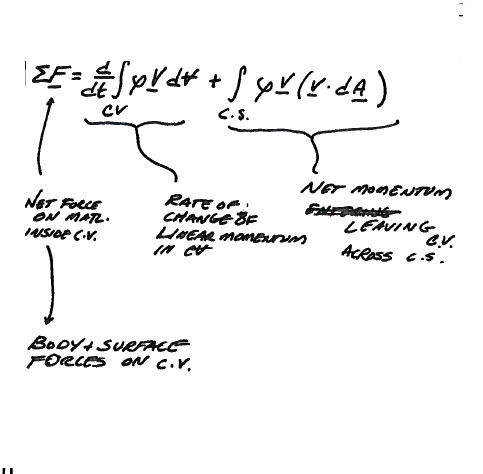 ΣF = d/dt ∫ φ V dV + ∫ φ V (V · dA)
CV
C.S.
NET FORCE
ON MATL.
INSIDE C.V.
RATE OF
CHANGE OF
LINEAR MOMENTUM
IN CV
NET MOMENTUM
ENTERING
LEAVING
C.V.
ACROSS C.S.
BODY + SURFACE
FORCES ON C.V.